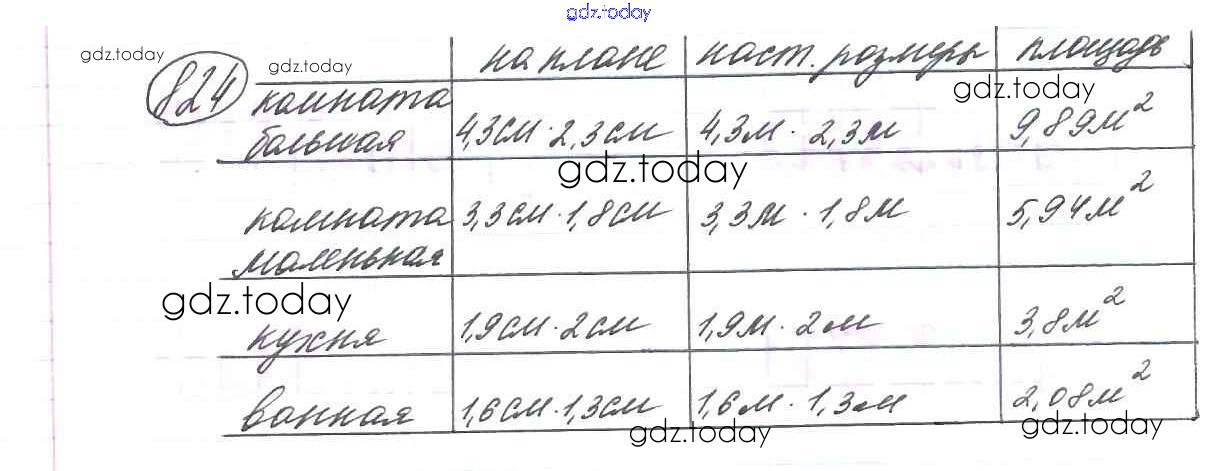 gdz.today
gdz.today
824
gdz.today
на плане наст. размеры площадь
gdz.today
комната
большая 4,3см · 2,3см 4,3м · 2,3м 9,89м²
gdz.today
комната 3,3см · 1,8см 3,3м · 1,8м 5,94м²
маленькая
gdz.today
кухня 1,9см · 2см 1,9м · 2м 3,8м²
ванная 1,6см · 1,3см 1,6м · 1,3м 2,08м²
gdz.today
gdz.today